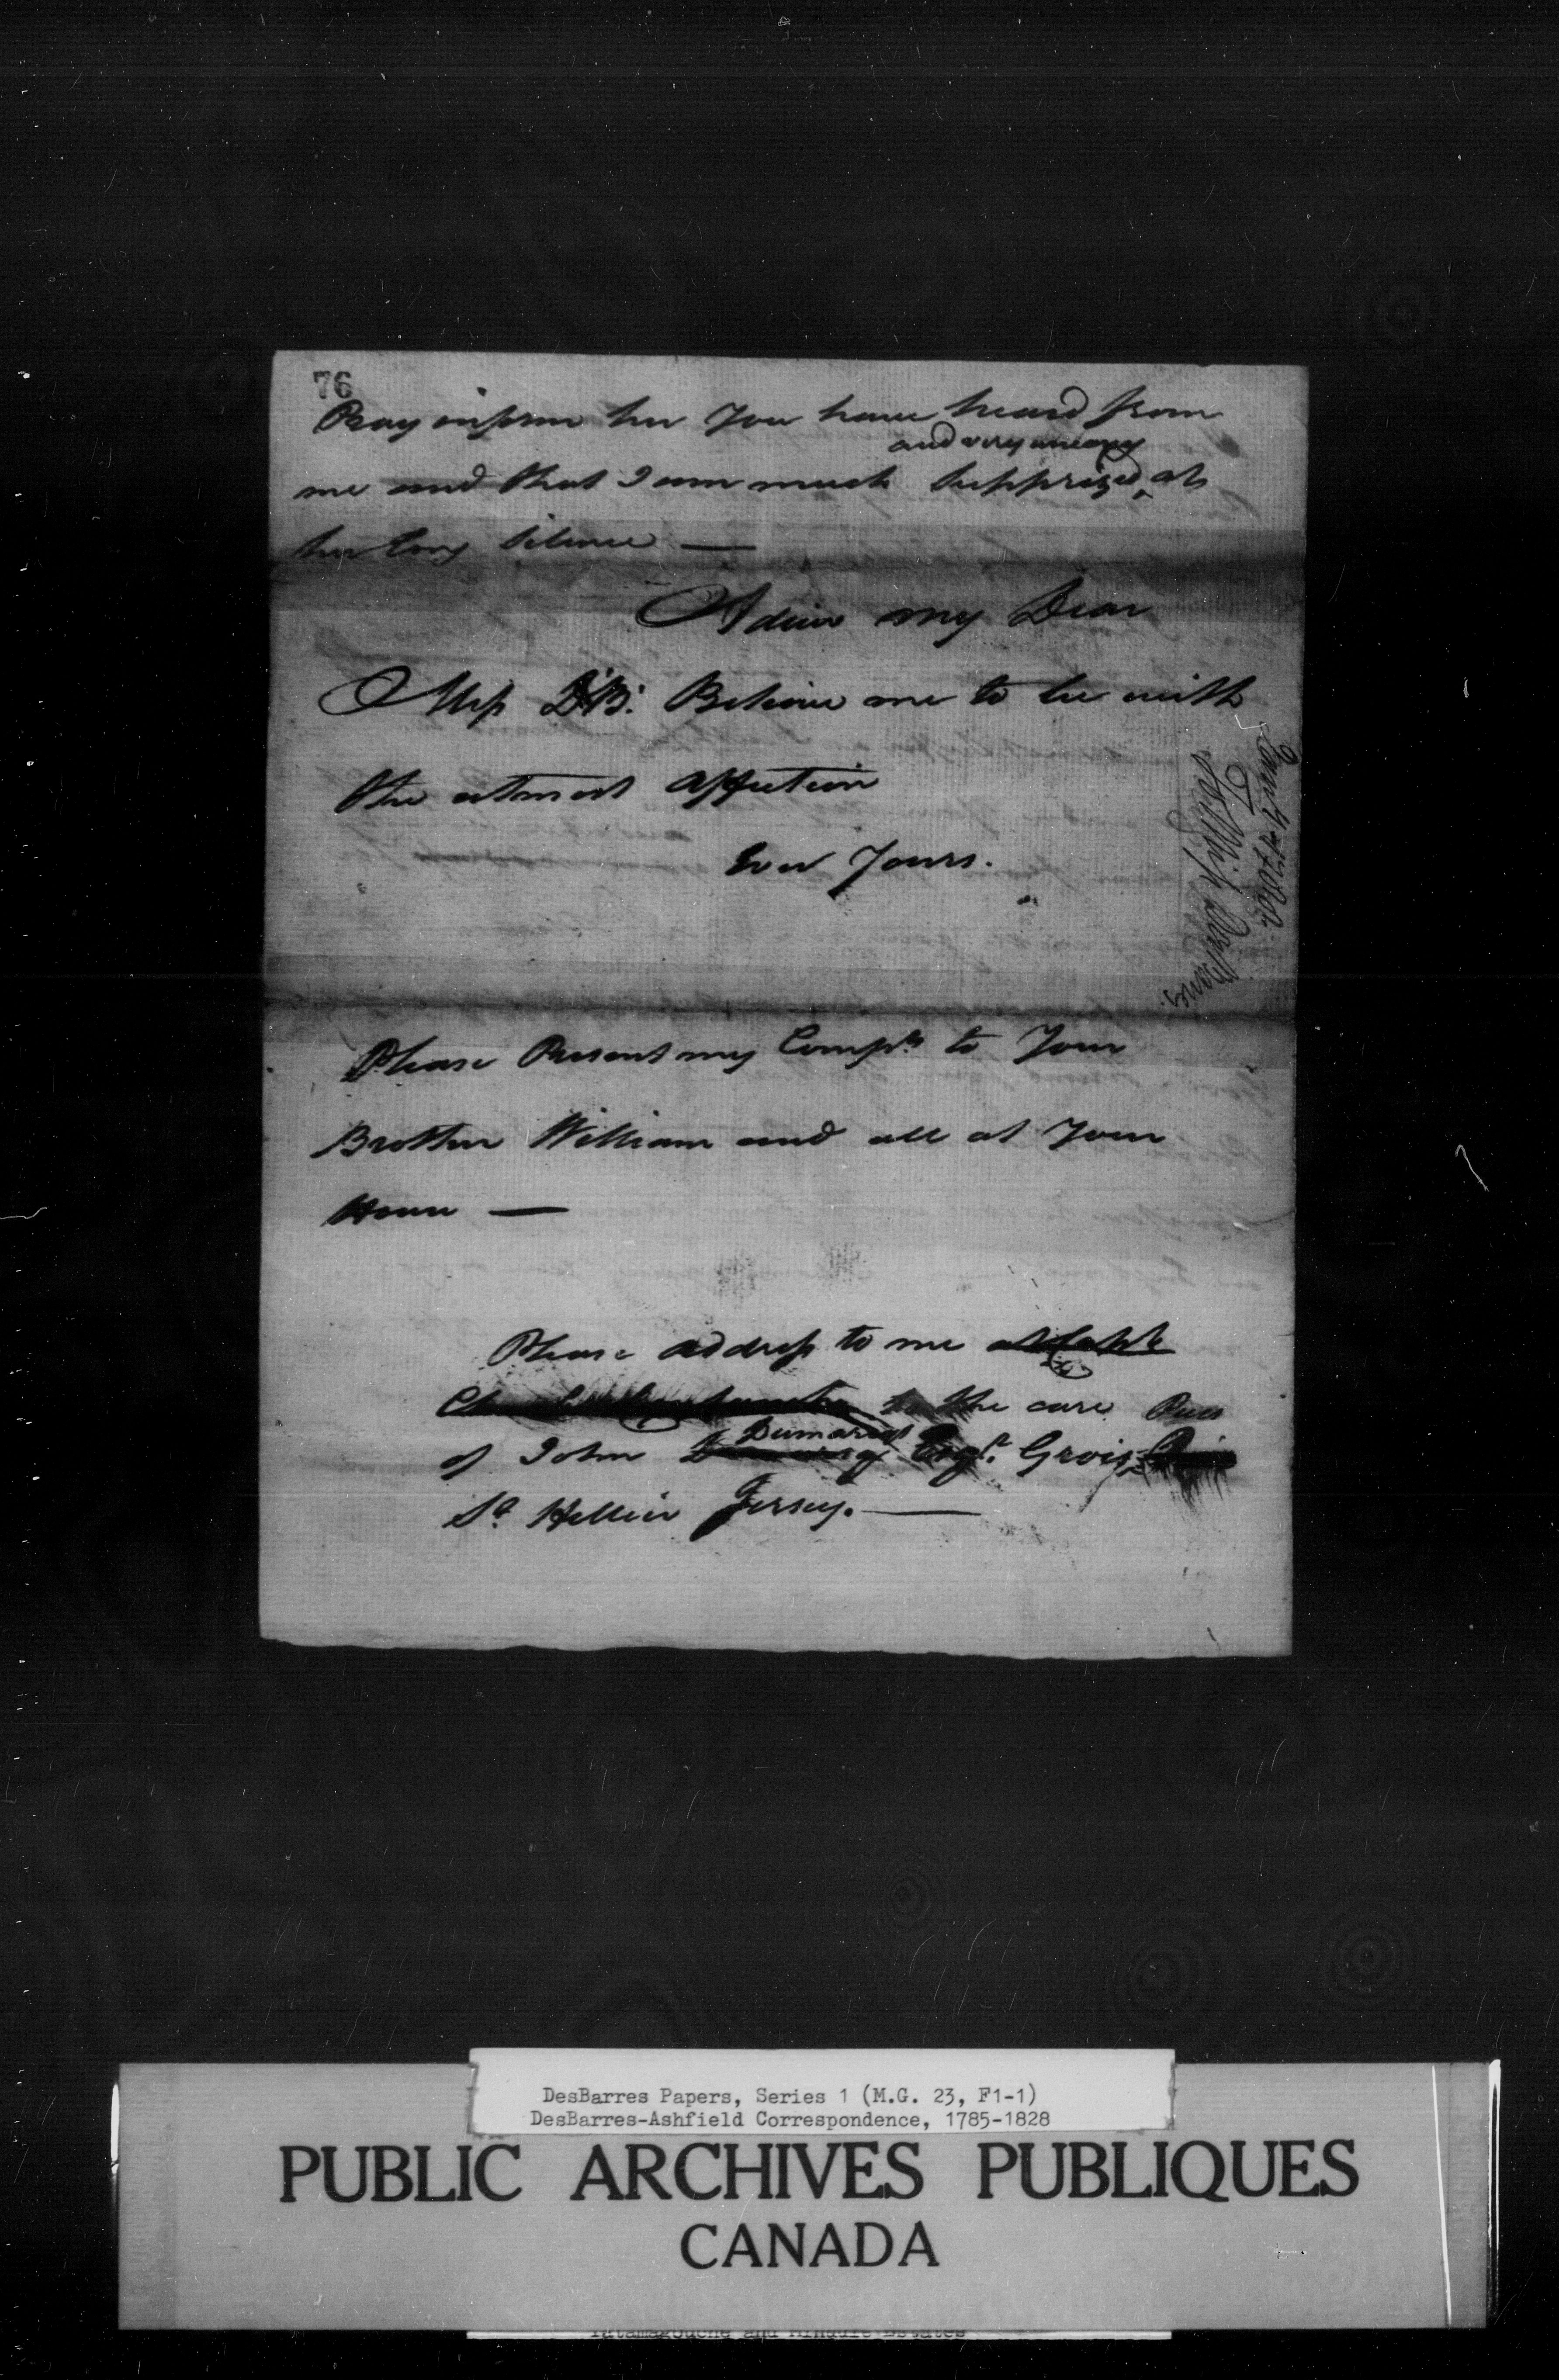 76
Pray inform her You have heard from
and very uneasy
me and that I am much Supprized at
her long Silence —
Adieu my Dear
Miss D'B. Believe me to be with
the utmost affection
Ever Yours.
To Miss DesBarres.
Please Present my Compts to Your
Brother William and all at Your
House —
Please address to me
to the care
Dumaresq
of John Esqr. Groiz
St. Hellier Jersey. —
DesBarres Papers, Series 1 (M.G. 23, F1-1)
DesBarres-Ashfield Correspondence, 1785-1828
PUBLIC ARCHIVES PUBLIQUES
CANADA
Tatamagouche and Minudie Estates